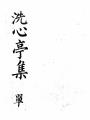 洗心亭集 單